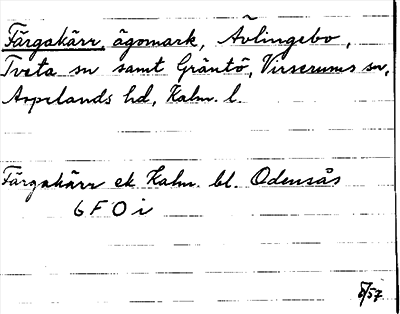 Färgakärr, ägomark, Åvlingebo,
Tveta sn samt Gräntö, Virserums sn,
Aspelands hd, Kalm. l.
Färgakärr ek Kalm. bl. Odensås
6 F O i
5/57